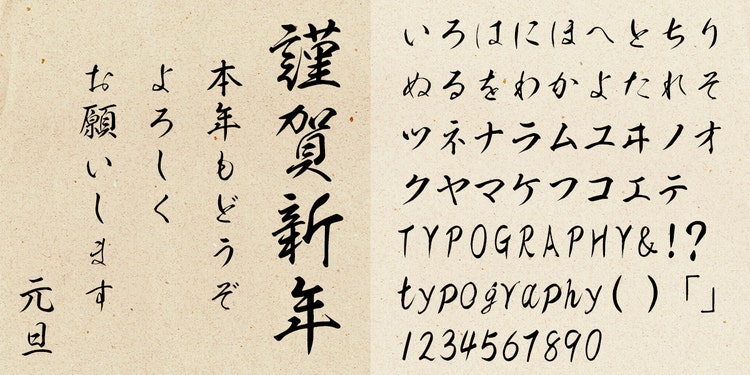 謹賀新年
本年もどうぞ
よろしく
お願いします
元旦
いろはにほへとちり
ぬるをわかよたれそ
ツネナラムユヰノオ
クヤマケフコエテ
TYPOGRAPHY&!?
typography()「」
1234567890